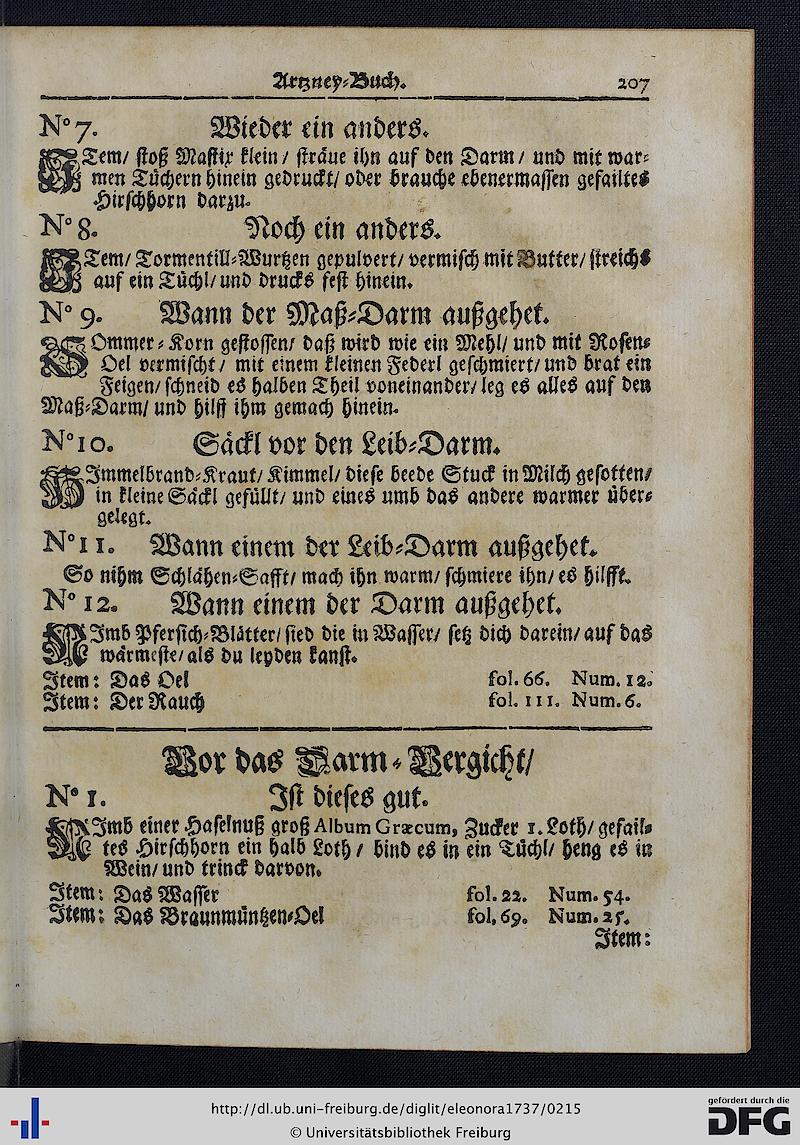 Artzney-Buch. 207
No 7. Wieder ein anders.
ITem/ stoß Mastix klein/ sträue ihn auf den Darm/ und mit war-
men Tüchern hinein gedruckt/ oder brauche ebenermassen gefailtes
Hirschhorn darzu.
No 8. Noch ein anders.
ITem/ Tormentill-Wurtzen gepulvert/ vermisch mit Butter/ streichs
auf ein Tüchl/ und drucks fest hinein.
No 9. Wann der Maß-Darm außgehet.
SOmmer-Korn gestossen/ daß wird wie ein Mehl/ und mit Rosen-
Oel vermischt/ mit einem kleinen Federl geschmiert/ und brat ein
Feigen/ schneid es halben Theil voneinander/ leg es alles auf den
Maß-Darm/ und hilff ihm gemach hinein.
No 10. Säckl vor den Leib-Darm.
HImmelbrand-Kraut/ Kimmel/ diese beede Stuck in Milch gesotten/
in kleine Säckl gefüllt/ und eines umb das andere warmer über-
gelegt.
No 11. Wann einem der Leib-Darm außgehet.
So nihm Schlähen-Safft/ mach ihn warm/ schmiere ihn/ es hilfft.
No 12. Wann einem der Darm außgehet.
NImb Pfersich-Blätter/ sied die in Wasser/ setz dich darein/ auf das
wärmeste/ als du leyden kanst.
Item: Das Oel fol. 66. Num. 12.
Item: Der Rauch fol. 111. Num. 6.
Vor das Darm-Vergicht/
No 1. Ist dieses gut.
NImb einer Haselnuß groß Album Græcum, Zucker 1. Loth/ gefail-
tes Hirschhorn ein halb Loth/ bind es in ein Tüchl/ heng es in
Wein/ und trinck darvon.
Item: Das Wasser fol. 22. Num. 54.
Item: Das Braunmüntzen-Oel fol. 69. Num. 25.
Item:
http://dl.ub.uni-freiburg.de/diglit/eleonora1737/0215
© Universitätsbibliothek Freiburg
gefördert durch die
DFG